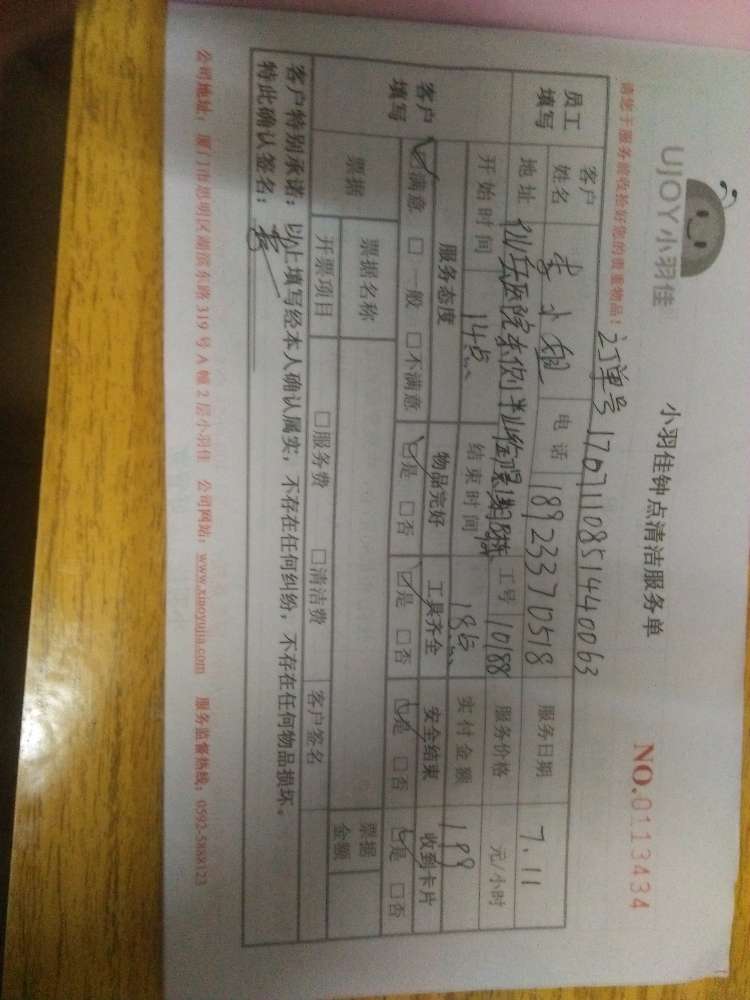 UJOY小羽佳
小羽佳钟点清洁服务单
NO.0113434
请您于服务前收拾好您的贵重物品!
订单号 1707110851440063
员工填写 客户姓名 李小姐 电话 18923370518 服务日期 7.11
地址 仙岳医院东侧 工号 10188 服务价格 元/小时
开始时间 14点 结束时间 18点 实付金额 199
客户填写 服务态度 物品完好 工具齐全 安全结束 收到卡片
☑满意 □一般 □不满意 ☑是 □否 ☑是 □否 ☑是 □否 ☑是 □否
票据 票据名称 票据金额
开票项目 □服务费 □清洁费 客户签名
客户特别承诺:以上填写经本人确认属实,不存在任何纠纷,不存在任何物品损坏。
特此确认签名:
公司地址:厦门市思明区湖滨东路319号A幢2层小羽佳 公司网站:www.xiaoyujia.com 服务监督热线:0592-5888123